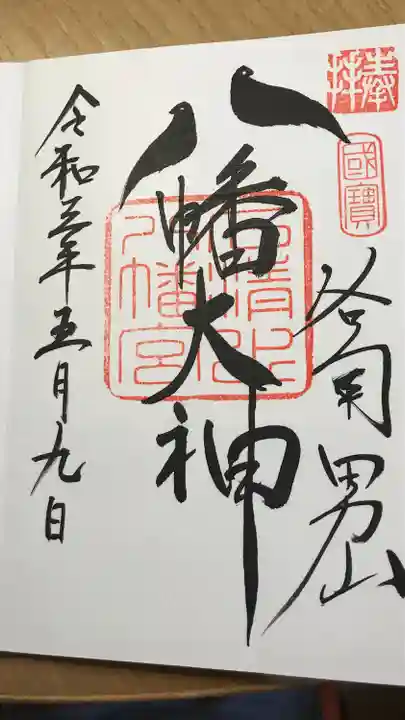 奉拝
國寶
洛南男山
八幡大神
石清水
八幡宮
令和三年五月九日